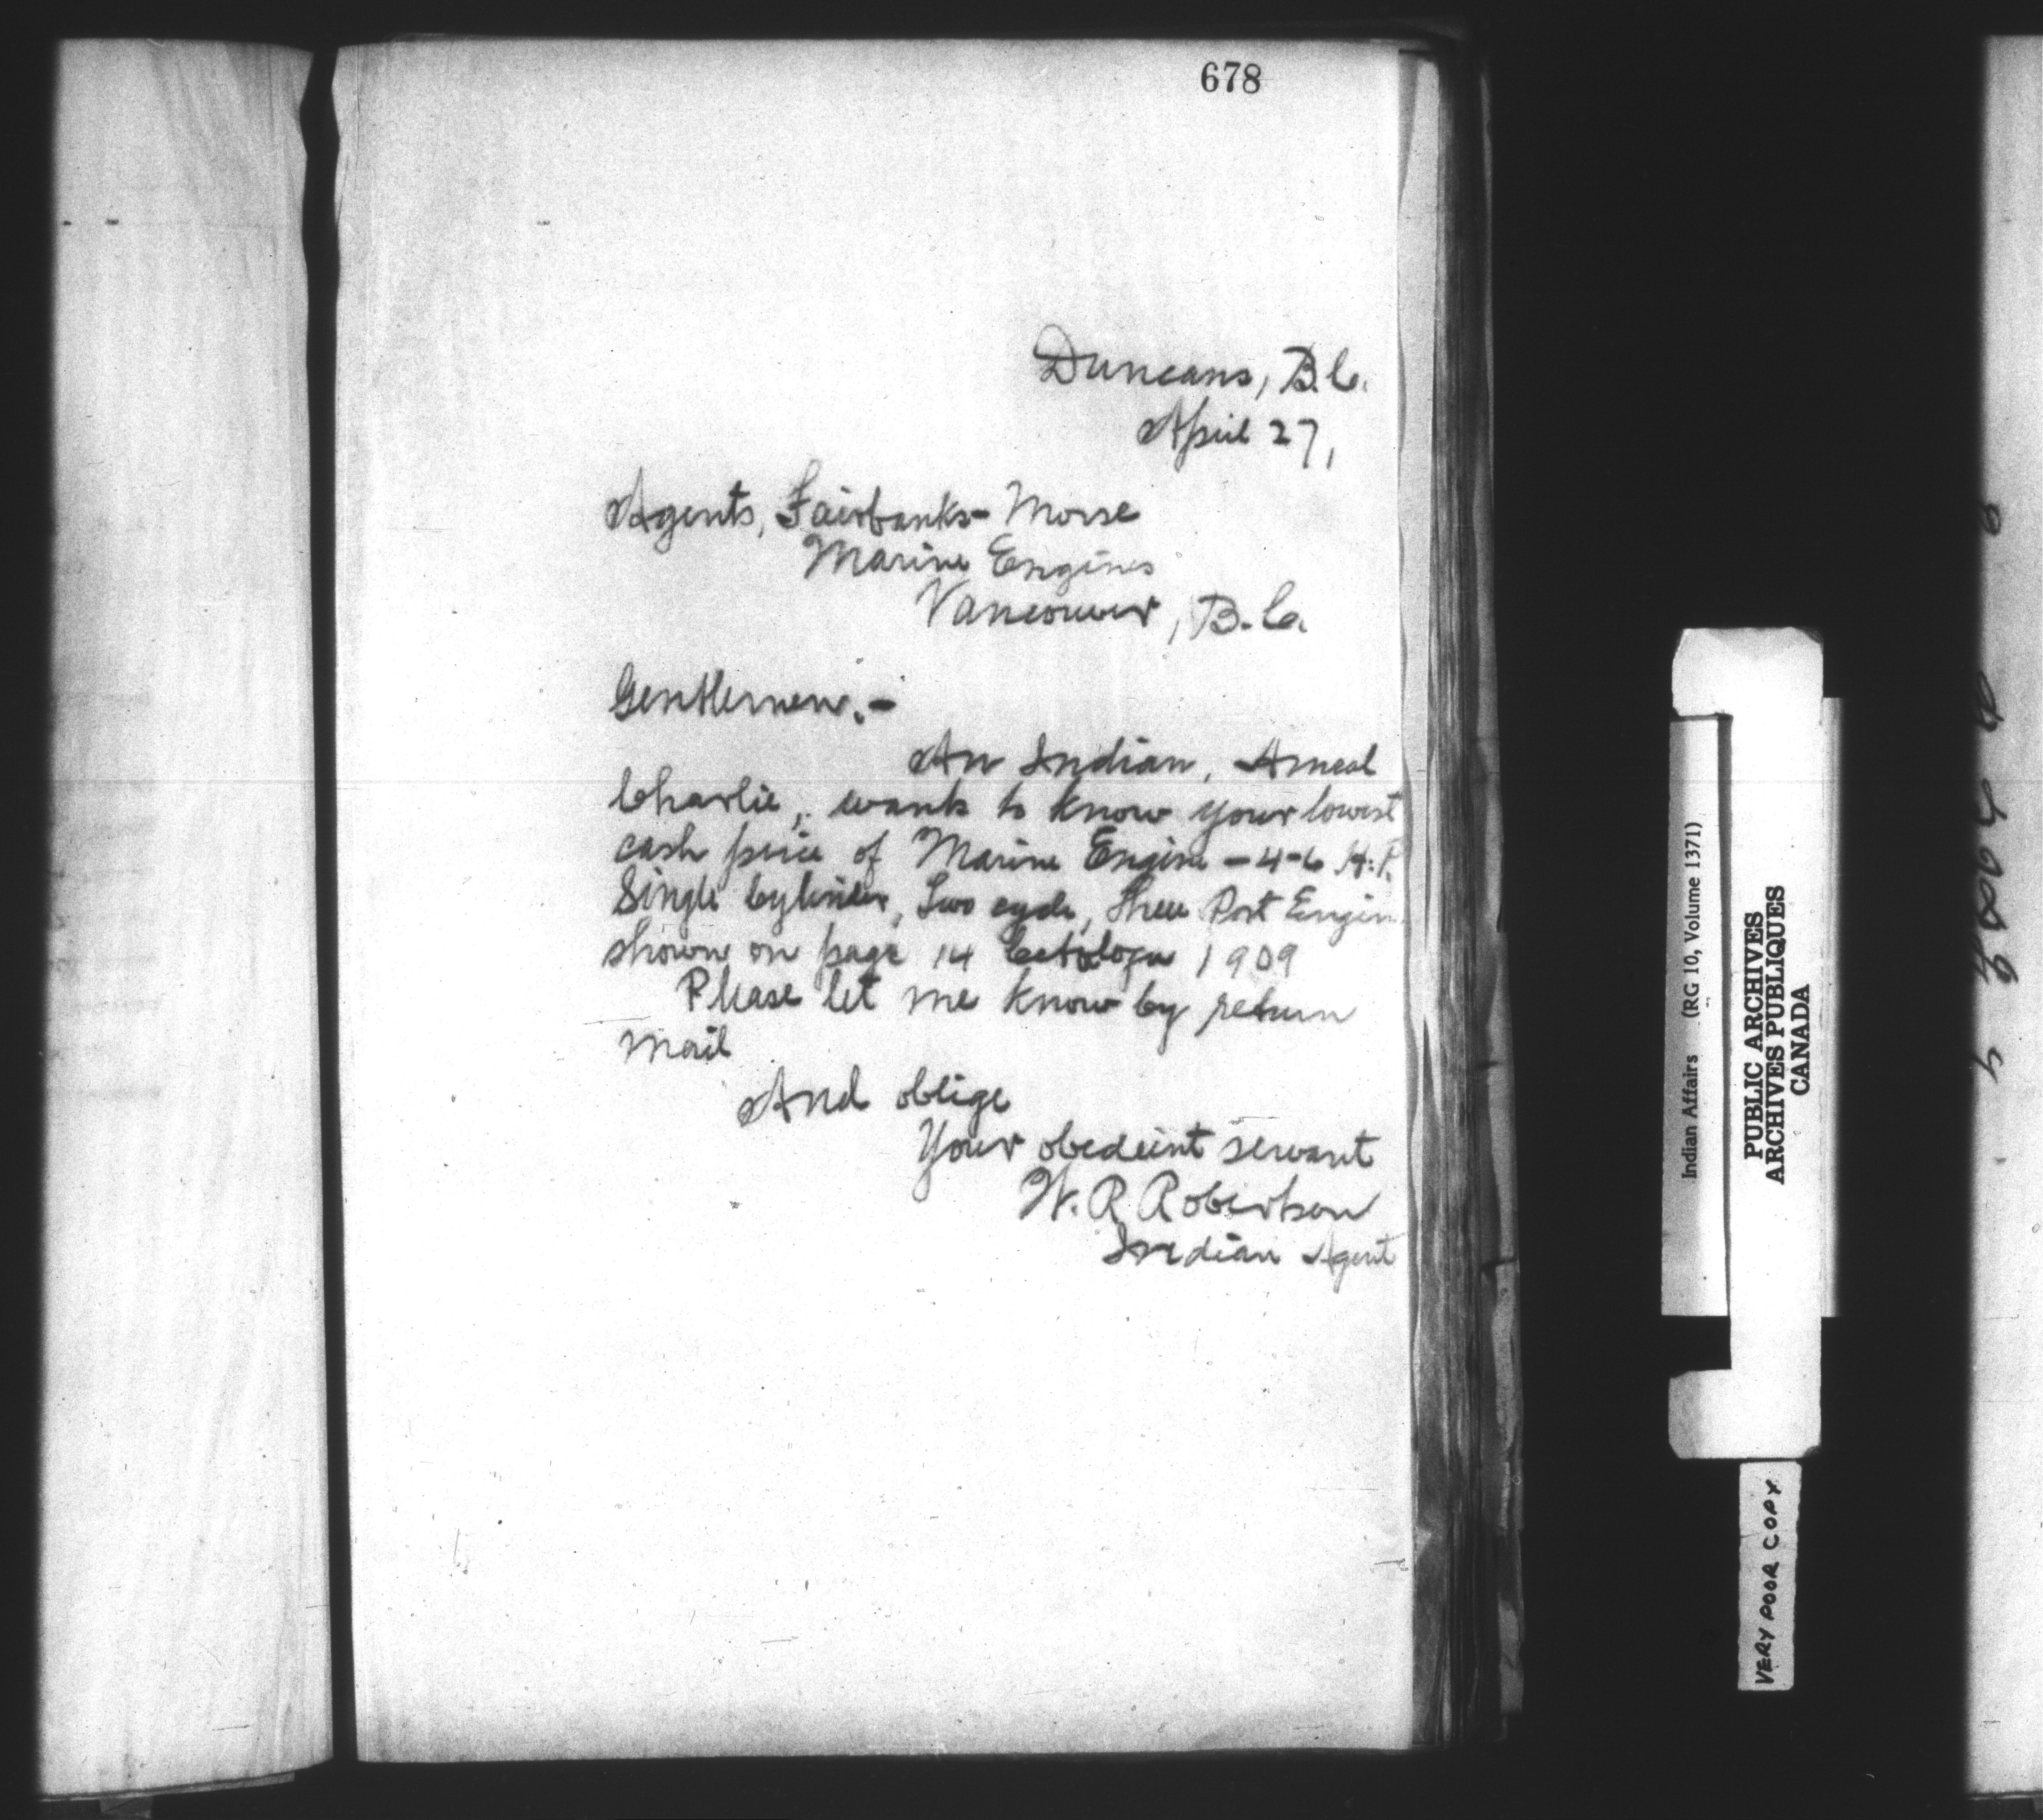 678
Duncans, B.C.
April 27,
Agents, Fairbanks-Morse
Marine Engines
Vancouver, B.C.
Gentlemen.-
An Indian,
Charlie, wants to know your lowest
cash price of Marine Engine - 4-6 H.P.
Single Cylinder, Two cycle, Three Port Engine
shown on page 14 Catalogue 1909
Please let me know by return
mail
And oblige
Your obedient servant
W. R. Robertson
Indian Agent
Indian Affairs (RG 10, Volume 1371)
PUBLIC ARCHIVES
ARCHIVES PUBLIQUES
CANADA
VERY POOR COPY